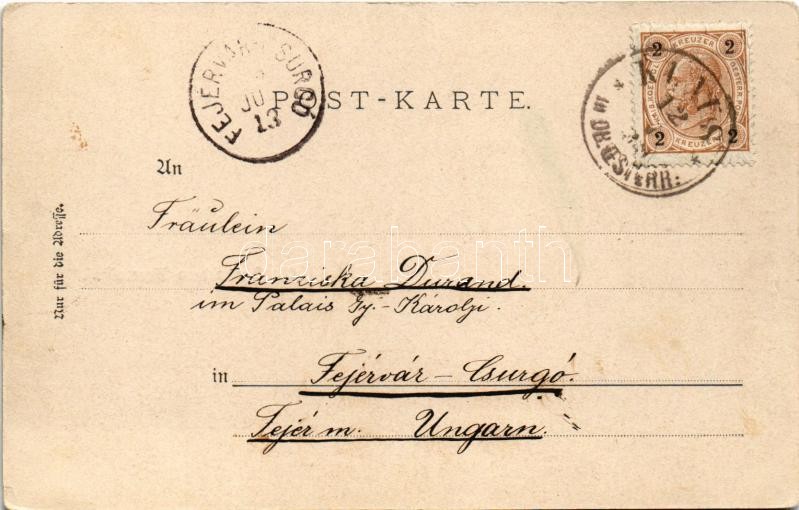 FEJÉRVÁR CSURGÓ
JU
13
POST-KARTE.
2 KREUZER 2
2 KREUZER 2
12
in OB. OESTERR:
An
Fräulein
darabanth
Franziska Durand.
im Palais Gy.-Károlji.
in Fejérvár-Csurgó.
Fejér m. Ungarn.
Nur für die Adresse.